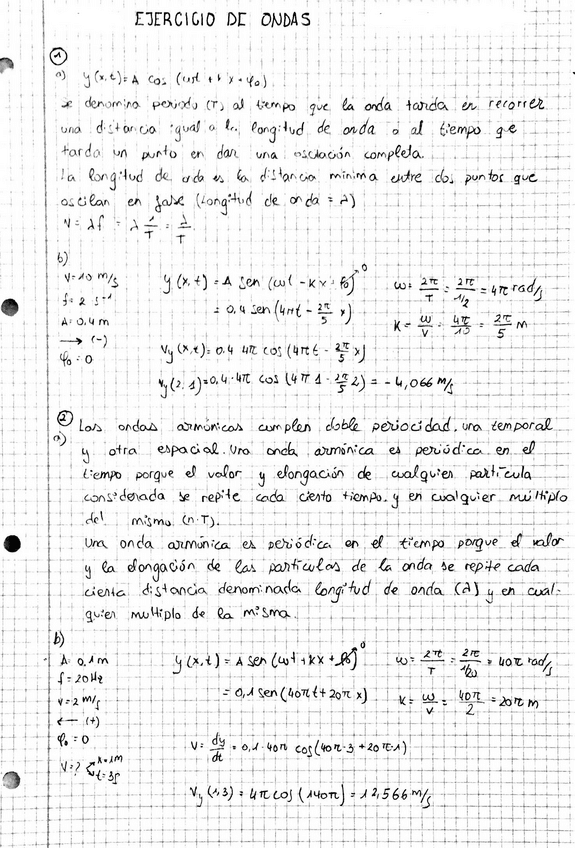 EJERCICIO DE ONDAS
①
a) y(x,t)=A cos (ωt + kx+φ₀)
se denomina periodo (T) al tiempo que la onda tarda en recorrer
una distancia igual a la longitud de onda o al tiempo que
tarda un punto en dar una oscilación completa.
La longitud de onda es la distancia mínima entre dos puntos que
oscilan en fase (Longitud de onda = λ)
V = λf = λ 1/T = λ/T
b)
V=10 m/s
f= 2 s⁻¹
A= 0,4m
→ (-)
φ₀ = 0
y(x,t) = A sen (ωt - kx + φ₀)→0
= 0,4 sen(4πt - 2π/5 x)
Vy(x,t)= 0.4 4π cos(4πt - 2π/5 x)
Vy(2,1)=0,4·4π cos (4π 1 - 2π/5 2) = -4,066 m/s
ω= 2π/T = 2π/1/2 = 4π rad/s
K= ω/V = 4π/10 = 2π/5 m
② Las ondas armónicas cumplen doble periocidad, una temporal
a) y otra espacial. Una onda armónica es periódica en el
tiempo porque el valor y elongación de cualquier partícula
considerada se repite cada cierto tiempo. y en cualquier múltiplo
del mismo (n·T).
Una onda armónica es periódica en el tiempo porque el valor
y la elongación de las partículas de la onda se repite cada
cierta distancia denominada longitud de onda (λ) y en cual-
quier multiplo de la misma.
b)
A= 0,1m
f= 20Hz
V= 2 m/s
← (+)
φ₀ = 0
V=? x=1m
t=3s
y(x,t) = A sen(ωt + kx + φ₀)→0
= 0,1 sen(40πt + 20π x)
V= dy/dt = 0,1·40π cos(40π·3 + 20π·1)
Vy(1,3) = 4π cos (140π) = 12,566 m/s
ω= 2π/T = 2π/1/20 = 40π rad/s
K= ω/V = 40π/2 = 20π m